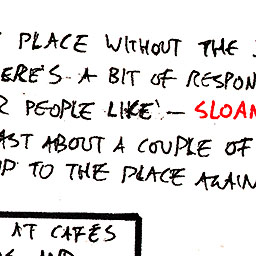 PLACE WITHOUT THE
ERE'S A BIT OF RESPON
PEOPLE LIKE — SLOAN
AST ABOUT A COUPLE OF
UP TO THE PLACE AGAIN
AT CAFES
AND